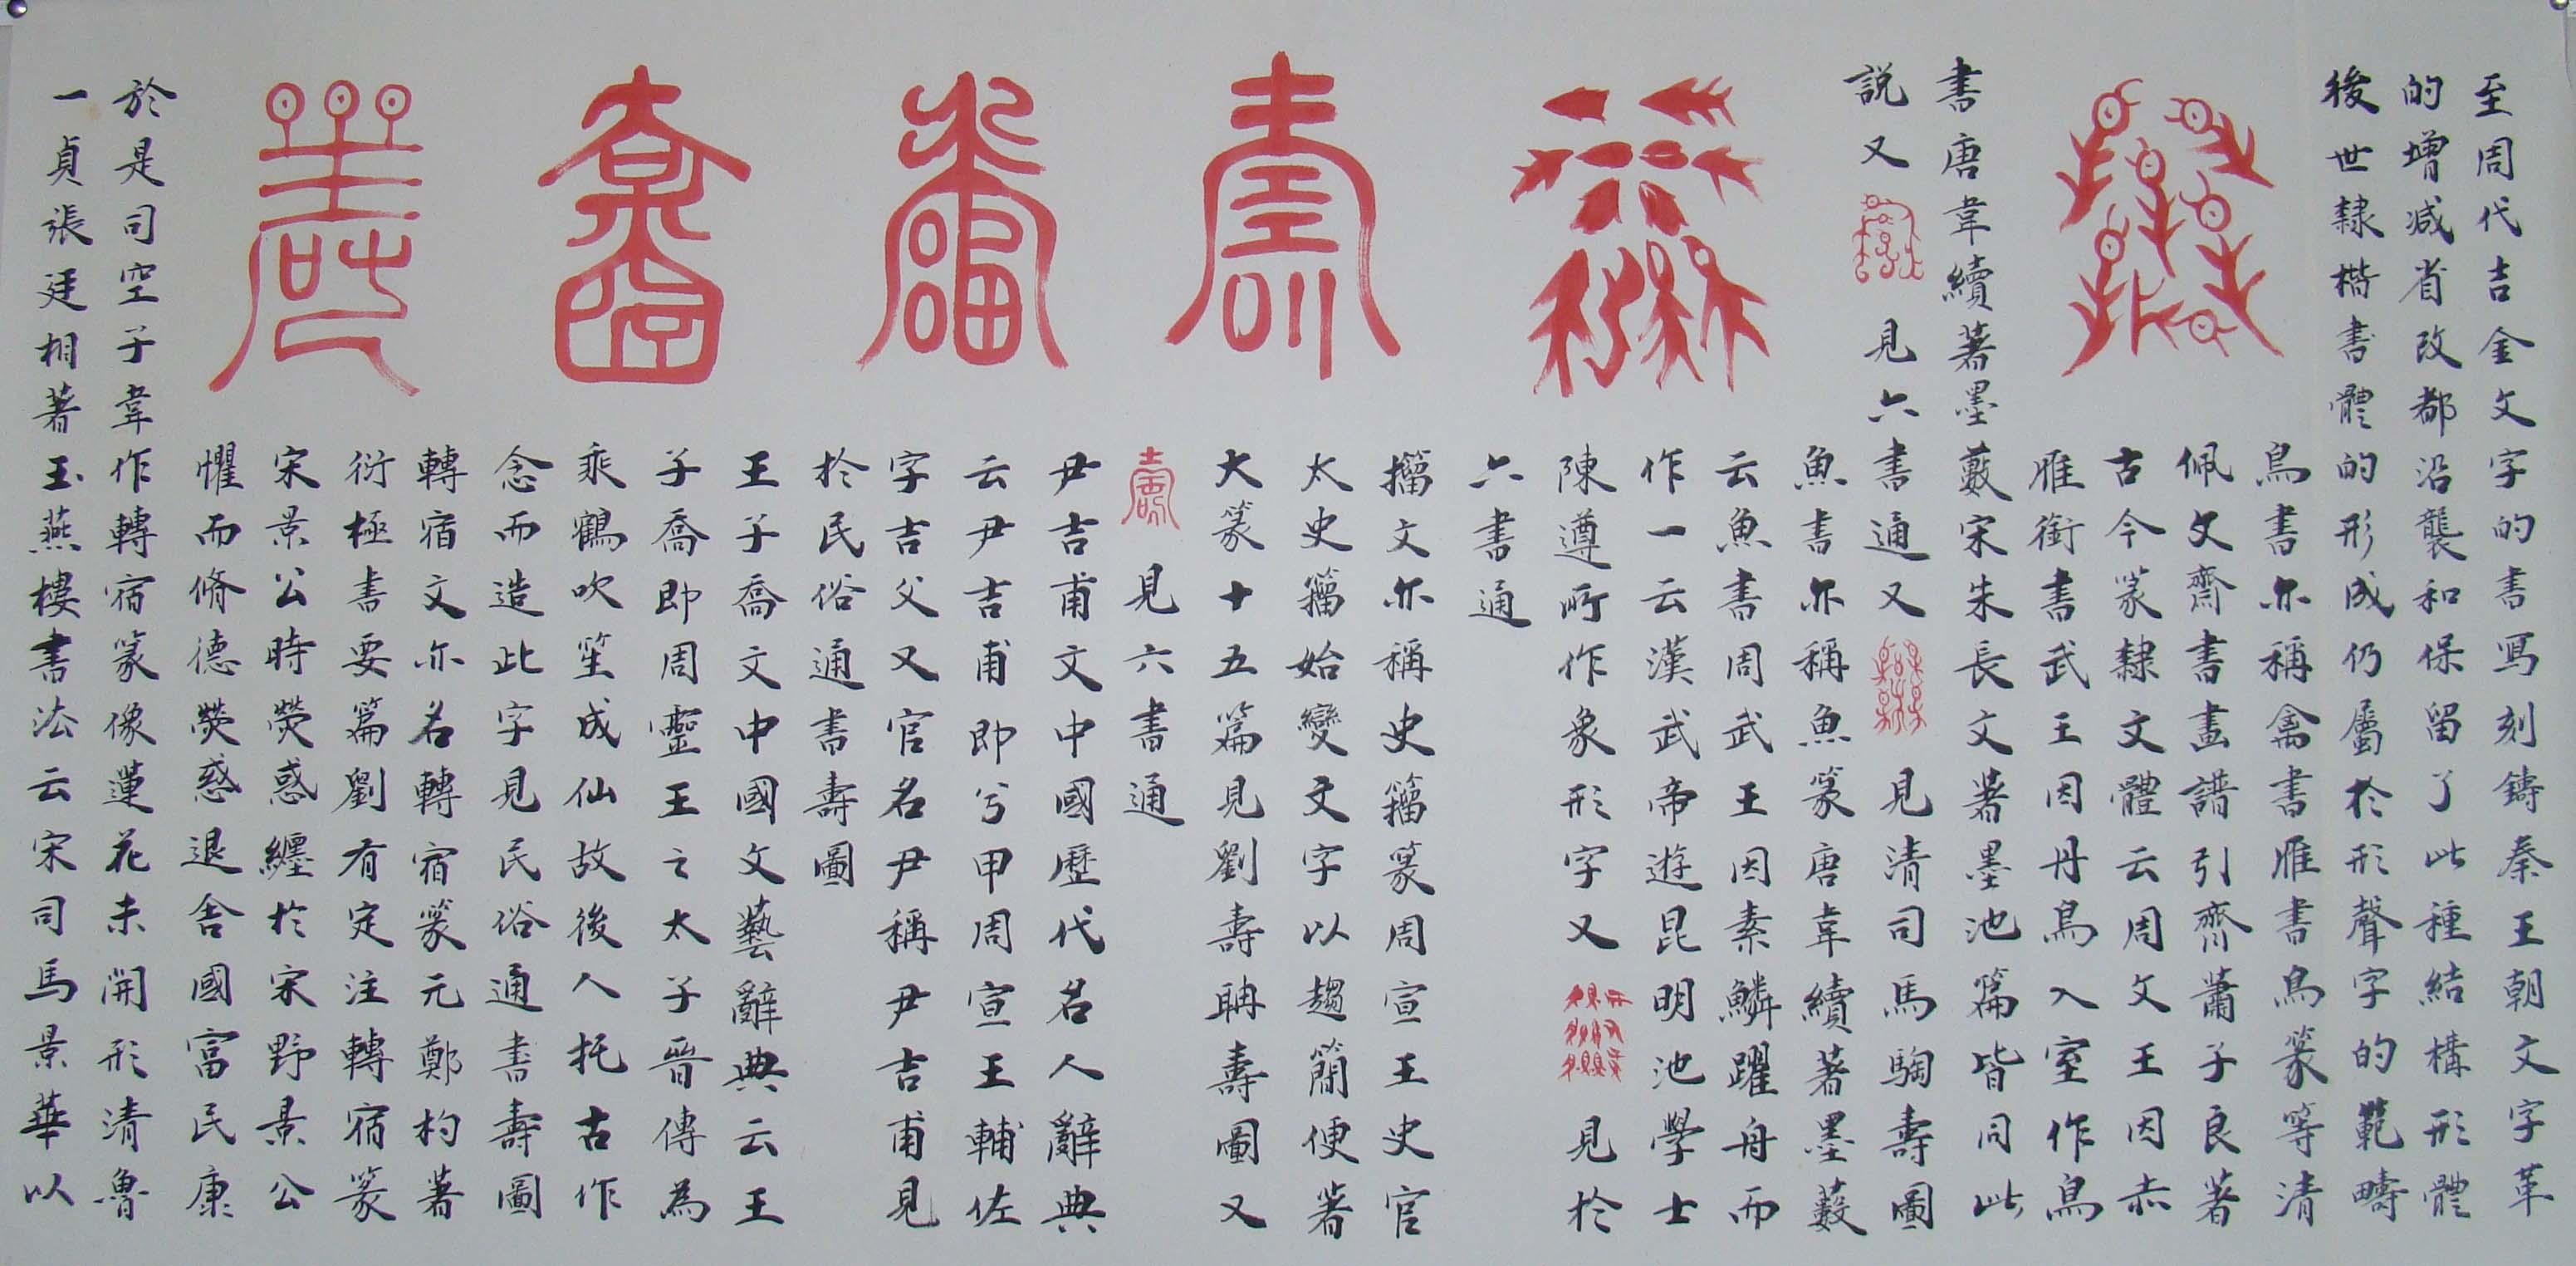 至周代吉金文字的書寫刻鑄秦王朝文字革
的增減省改都沿襲和保留了此種結構形體
後世隸楷書體的形成仍屬於形聲字的範疇
鳥書亦稱禽書雁書鳥篆等清
佩文齋書畫譜引齊蕭子良著
古今篆隸文體云周文王因赤
雁銜書武王因丹鳥入室作鳥
書唐韋續著墨藪宋朱長文著墨池篇皆同此
說又 見六書通又 見清司馬騊壽圖
魚書亦稱魚篆唐韋續著墨藪
云魚書周武王因素鱗躍舟而
作一云漢武帝遊昆明池學士
陳遵所作象形字又 見於
六書通
籀文亦稱史籀篆周宣王史官
太史籀始變文字以趨簡便著
大篆十五篇見劉壽聃壽圖又
壽 見六書通
尹吉甫文中國歷代名人辭典
云尹吉甫即兮甲周宣王輔佐
字吉父又官名尹稱尹吉甫見
於民俗通書壽圖
王子喬文中國文藝辭典云王
子喬即周靈王之太子晉傳為
乘鶴吹笙成仙故後人托古作
念而造此字見民俗通書壽圖
轉宿文亦名轉宿篆元鄭杓著
衍極書要篇劉有定注轉宿篆
宋景公時熒惑纏於宋野景公
懼而脩德熒惑退舍國富民康
於是司空子韋作轉宿篆像蓮花未開形清魯
一貞張廷相著玉燕樓書法云宋司馬景華以